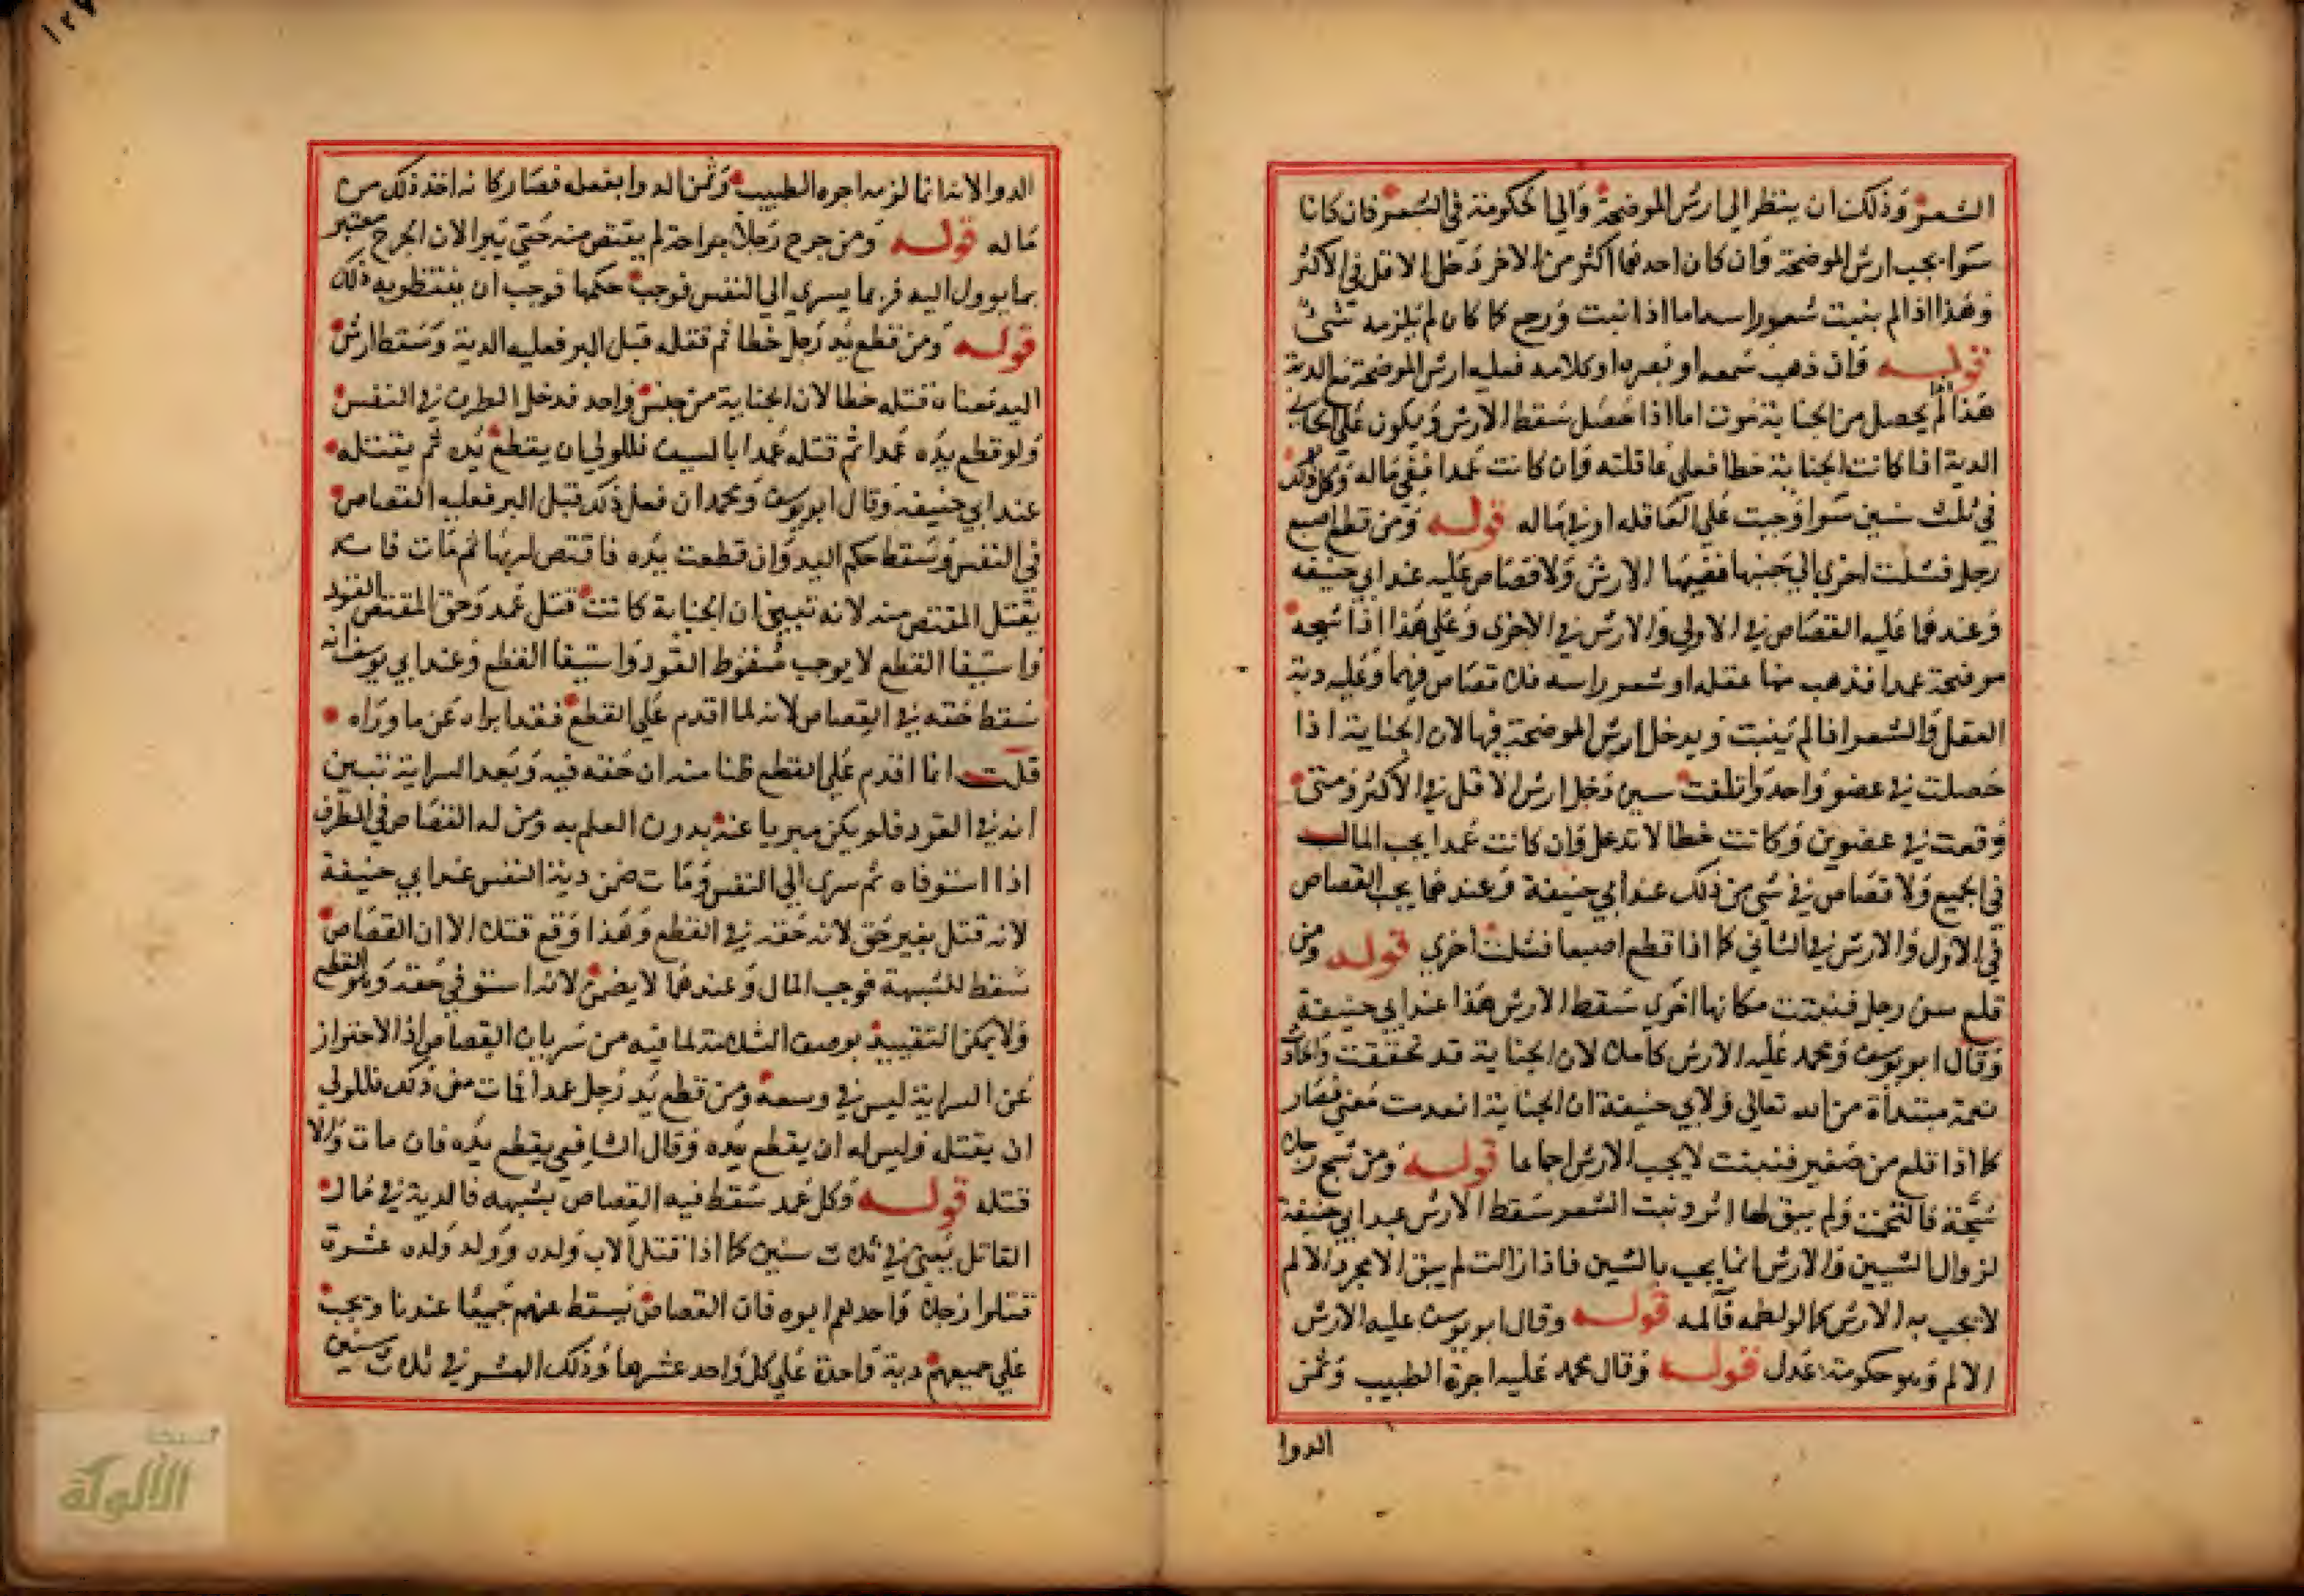 الشعر وذلك ان ينظر الى ارش الموضحة والى الحكومة في الشعر فان كانا
سوا يجب ارش الموضحة وان كان احدهما اكثر من الاخر دخل الاقل في الاكثر
وهذا اذا لم ينبت شعر راسه اما اذا نبت ورجع كما كان لم يلزمه شئ
قوله فان ذهب سمعه او بصره او كلامه فعليه ارش الموضحة مع الدية
هذا اذا لم يحصل من الجناية موت اما اذا حصل سقط الارش ويكون على الجاني
الدية اذا كانت الجناية خطا فعلى عاقلته وان كانت عمدا ففي ماله وكل ذلك
في ثلث سنين سوا وجبت على العاقلة او في ماله قوله ومن قطع اصبع
رجل فشلت اخرى الى جنبها ففيهما الارش ولا قصاص عليه عند ابي حنيفة
وعندهما عليه القصاص في الاولى والارش في الاخرى وعلى هذا اذا شجه
موضحة عمدا فذهب منها عقله او شعر راسه فلا قصاص فيهما وعليه دية
العقل والشعر اذا لم ينبت ويدخل ارش الموضحة فيها لان الجناية اذا
حصلت في عضو واحد واتلفت دخل ارش الاقل في الاكثر ومتى
وقعت في عضوين وكانت خطا لا تدخل وان كانت عمدا يجب المال
في الجميع ولا قصاص في شي من ذلك عند ابي حنيفة وعندهما يجب القصاص
في الاول والارش في الثاني كما اذا قطع اصبعا فشلت اخرى قوله ومن
قلع سن رجل فنبتت مكانها اخرى سقط الارش هذا عند ابي حنيفة
وقال ابو يوسف ومحمد عليه الارش كاملا لان الجناية قد تحققت والحادث
نعمة مبتداة من الله تعالى ولابي حنيفة ان الجناية انعدمت معنى فصار
كما اذا قلع من صغير فنبتت لا يجب الارش اجماعا قوله ومن شج رجلا
شجة فالتحمت ولم يبق لها اثر ونبت الشعر سقط الارش عند ابي حنيفة
لزوال الشين والارش انما يجب بالشين فاذا زالت لم يبق الا مجرد الالم
لا يجب به الارش كما لو لطمه فآلمه قوله وقال ابو يوسف عليه الارش
الالم وهو حكومة عدل قوله وقال محمد عليه اجرة الطبيب وثمن
الدوا
الدوا لانه انما لزمه اجره الطبيب وثمن الدوا بفعله فصار كانه اخذ ذلك من
ماله قوله ومن جرح رجلا جراحة لم يقتص منه حتى يبرا لان الجرح معتبر
بما يوول اليه فربما يسري الى النفس فوجب حكمها فوجب ان ينتظر به ذلك
قوله ومن قطع يد رجل خطا ثم قتله قبل البر فعليه الدية وسقط ارش
اليد معناه قتله خطا لان الجناية من جنس واحد فدخل الطرف في النفس
ولو قطع يده عمدا ثم قتله عمدا بالسيف فللولي ان يقطع يده ثم يقتله
عند ابي حنيفة وقال ابو يوسف ومحمد ان فعل ذلك قبل البر فعليه القصاص
في النفس وسقط حكم اليد وان قطعت يده فاقتص لربها ثم مات فانه
يقتل المقتص منه لانه تبين ان الجناية كانت قتل عمد وحق المقتص القود
واستيفا القطع لا يوجب سقوط القود واستيفا القطع وعند ابي يوسف انه
سقط حقه في القصاص لانه لما اقدم على القطع فقد ابراه عن ما وراه
قلت انما اقدم على القطع ظنا منه ان حقه فيه وبعد السراية تبين
انه في القود فلم يكن مبريا عنه بدون العلم به ومن له القصاص في الطرف
اذا استوفاه ثم سرى الى النفس ومات ضمن دية النفس عند ابي حنيفة
لانه قتل بغير حق لانه حقه في القطع وهذا وقع قتلا الا ان القصاص
سقط للشبهة فوجب المال وعندهما لا يضمن لانه استوفى حقه وهو القطع
ولا يمكن التقييد بوصف السلامة لما فيه من سد باب القصاص اذ الاحتراز
عن السراية ليس في وسعه ومن قطع يد رجل عمدا فمات من ذلك فللولي
ان يقتله وليس له ان يقطع يده وقال الشافعي يقطع يده فان مات والا
قتله قوله وكل عمد سقط فيه القصاص بشبهه فالدية في مال
القاتل يعني في ثلاث سنين كما اذا قتل الاب ولده وولد ولده عشرة
قتلوا رجلا واحدهم ابوه فان القصاص يسقط عنهم جميعا عندنا ويجب
على جميعهم دية واحدة على كل واحد عشرها وذلك العشر في ثلاث سنين
الألوكة